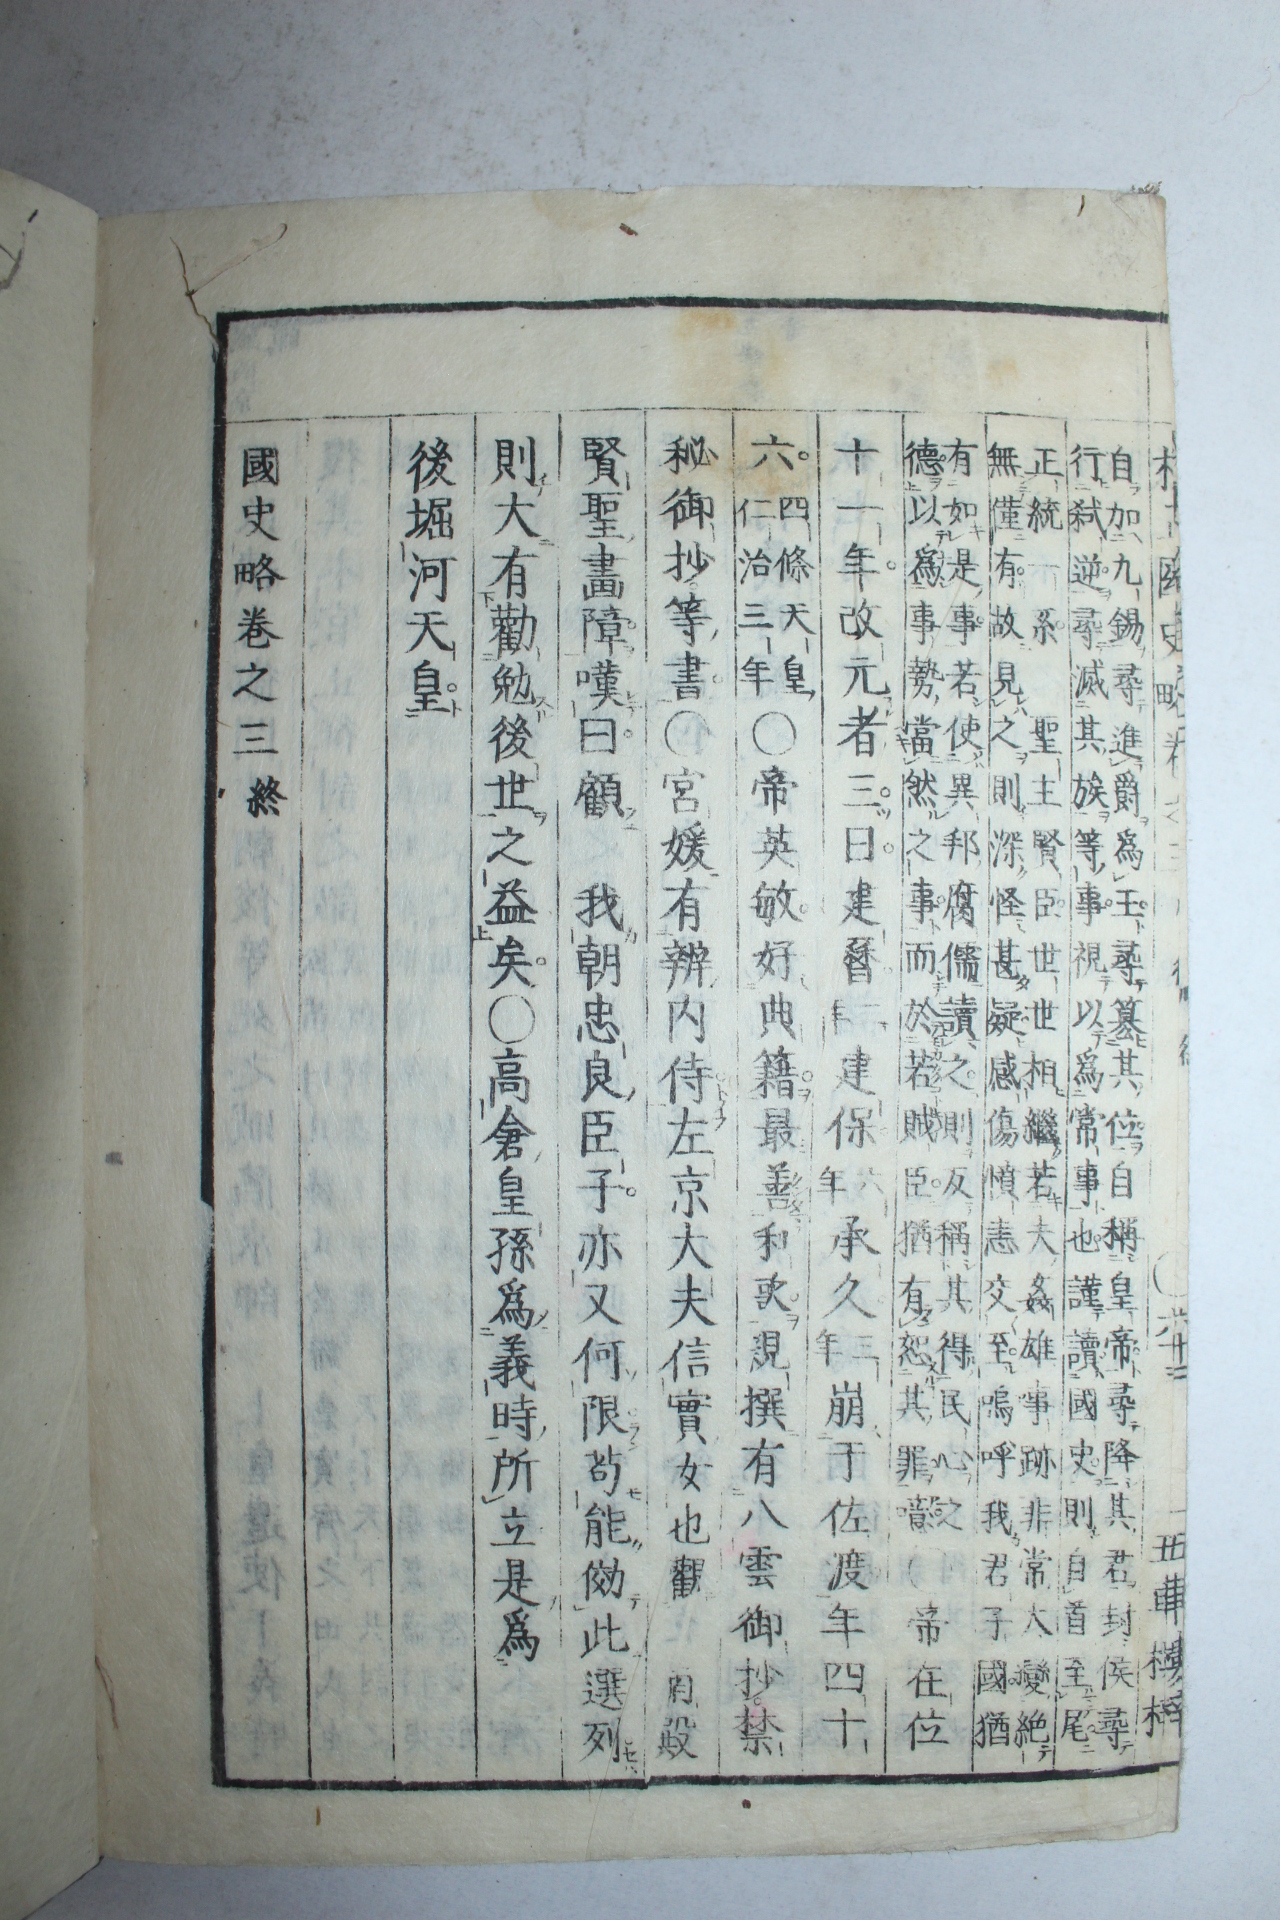 自加九錫尋進爵為王尋篡其位自稱皇帝尋降其君封侯尋
行弑逆尋滅其族等事視以為常事也謹讀國史則自首至尾
正統一系聖主賢臣世世相繼若夫姦雄事跡非常大變絕
無僅有故見之則深怪甚疑感傷憤恚交至嗚呼我君子國猶
有如是事若使異邦腐儒讀之則反稱其得民心之
德以為事勢當然之事而於若賊臣猶有恕其罪噫
帝在位
十一年改元者三曰建曆二年建保六年承久三年崩于佐渡年四十
六四條天皇仁治三年○帝英敏好典籍最善和歌親撰有八雲御抄禁
秘御抄等書○宮媛有辨內侍左京大夫信實女也觀南殿
賢聖畫障嘆曰顧我朝忠良臣子亦又何限苟能傚此選列
則大有勸勉後世之益矣○高倉皇孫為義時所立是為
後堀河天皇
國史略卷之三終